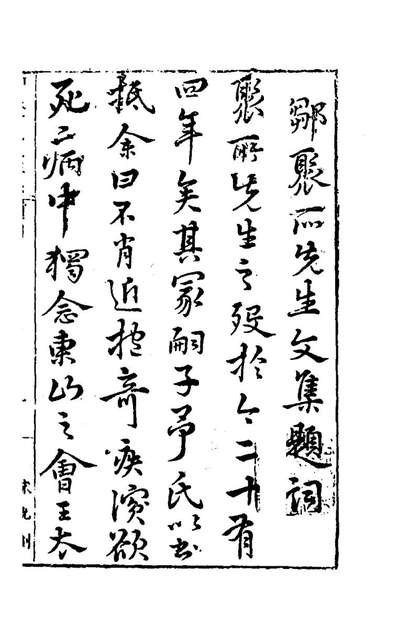 鄒聚所先生文集題詞
聚所先生之歿於今二十有
四年矣其冢嗣子尹氏以書
抵余曰不肖近抱奇疾瀕欲
死亡病中獨念東山之會王太